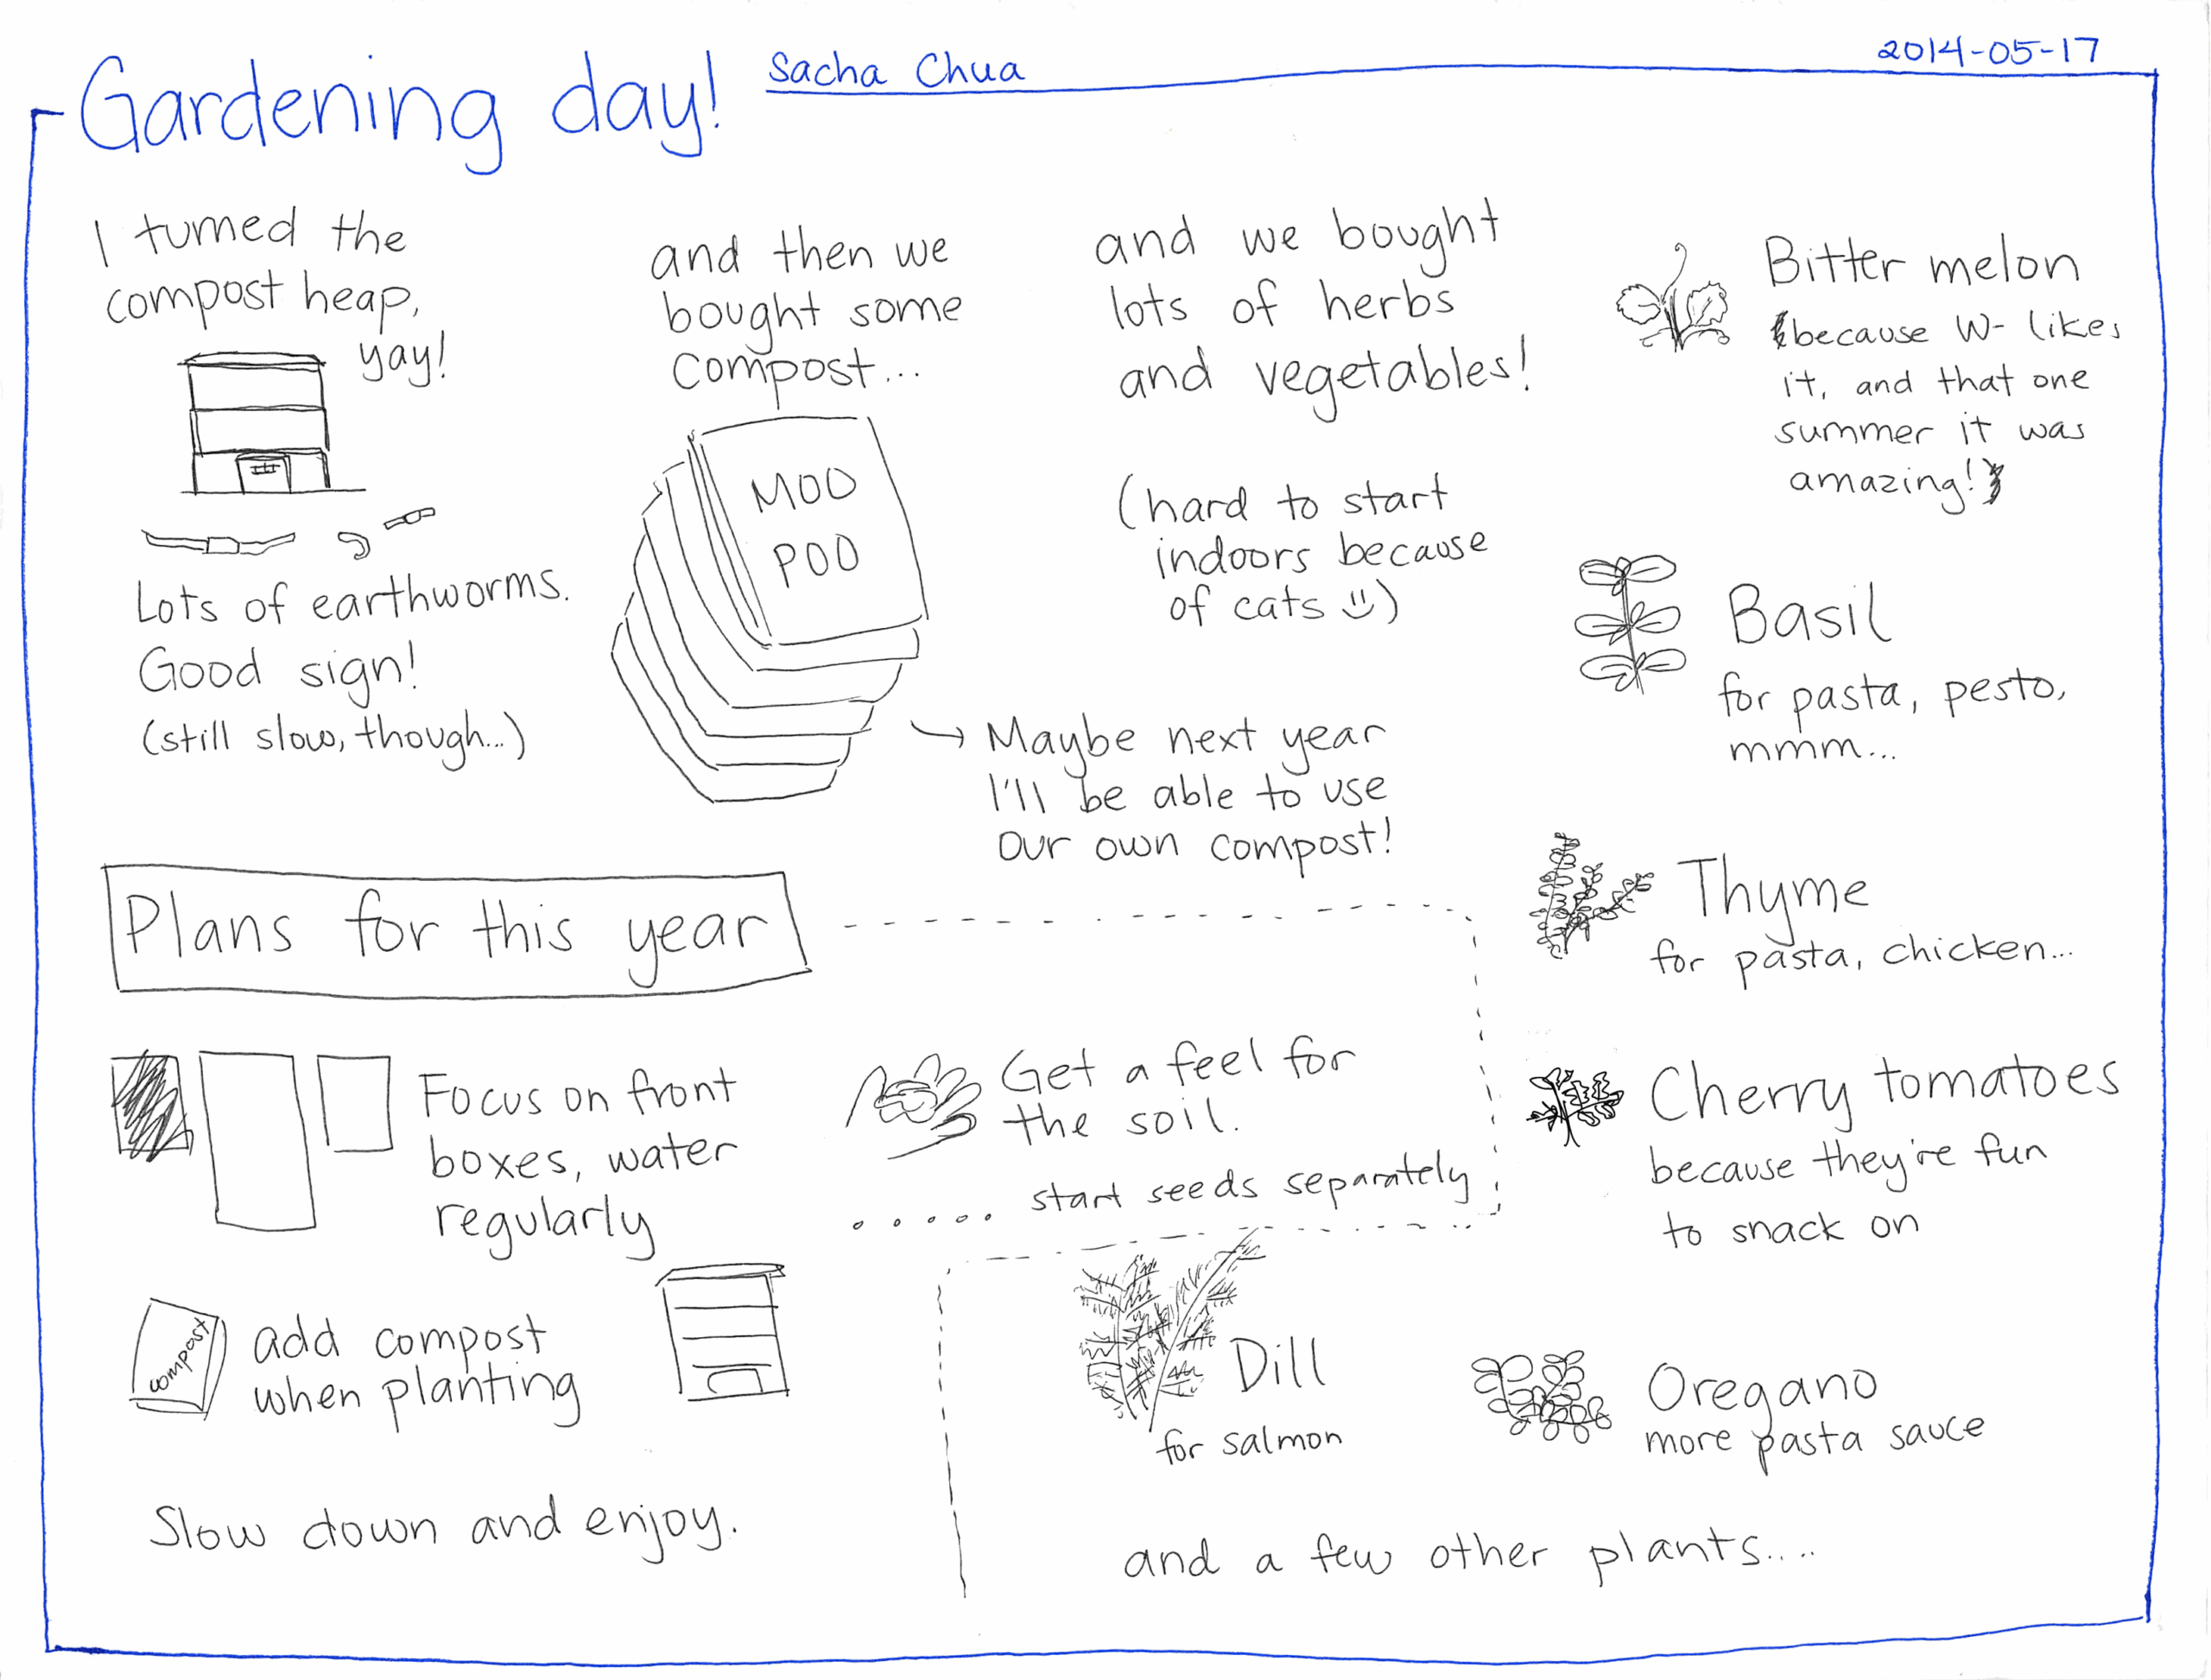 Gardening day!
Sacha Chua
2014-05-17
I turned the
compost heap,
yay!
Lots of earthworms.
Good sign!
(still slow, though...)
and then we
bought some
compost...
MOO
POO
Maybe next year
I'll be able to use
our own compost!
and we bought
lots of herbs
and vegetables!
(hard to start
indoors because
of cats :))
Bitter melon
because W- likes
it, and that one
summer it was
amazing!
Basil
for pasta, pesto,
mmm...
Thyme
for pasta, chicken...
Cherry tomatoes
because they're fun
to snack on
Dill
for salmon
Oregano
more pasta sauce
and a few other plants....
Plans for this year
Focus on front
boxes, water
regularly
Get a feel for
the soil.
start seeds separately
compost
add compost
when planting
Slow down and enjoy.